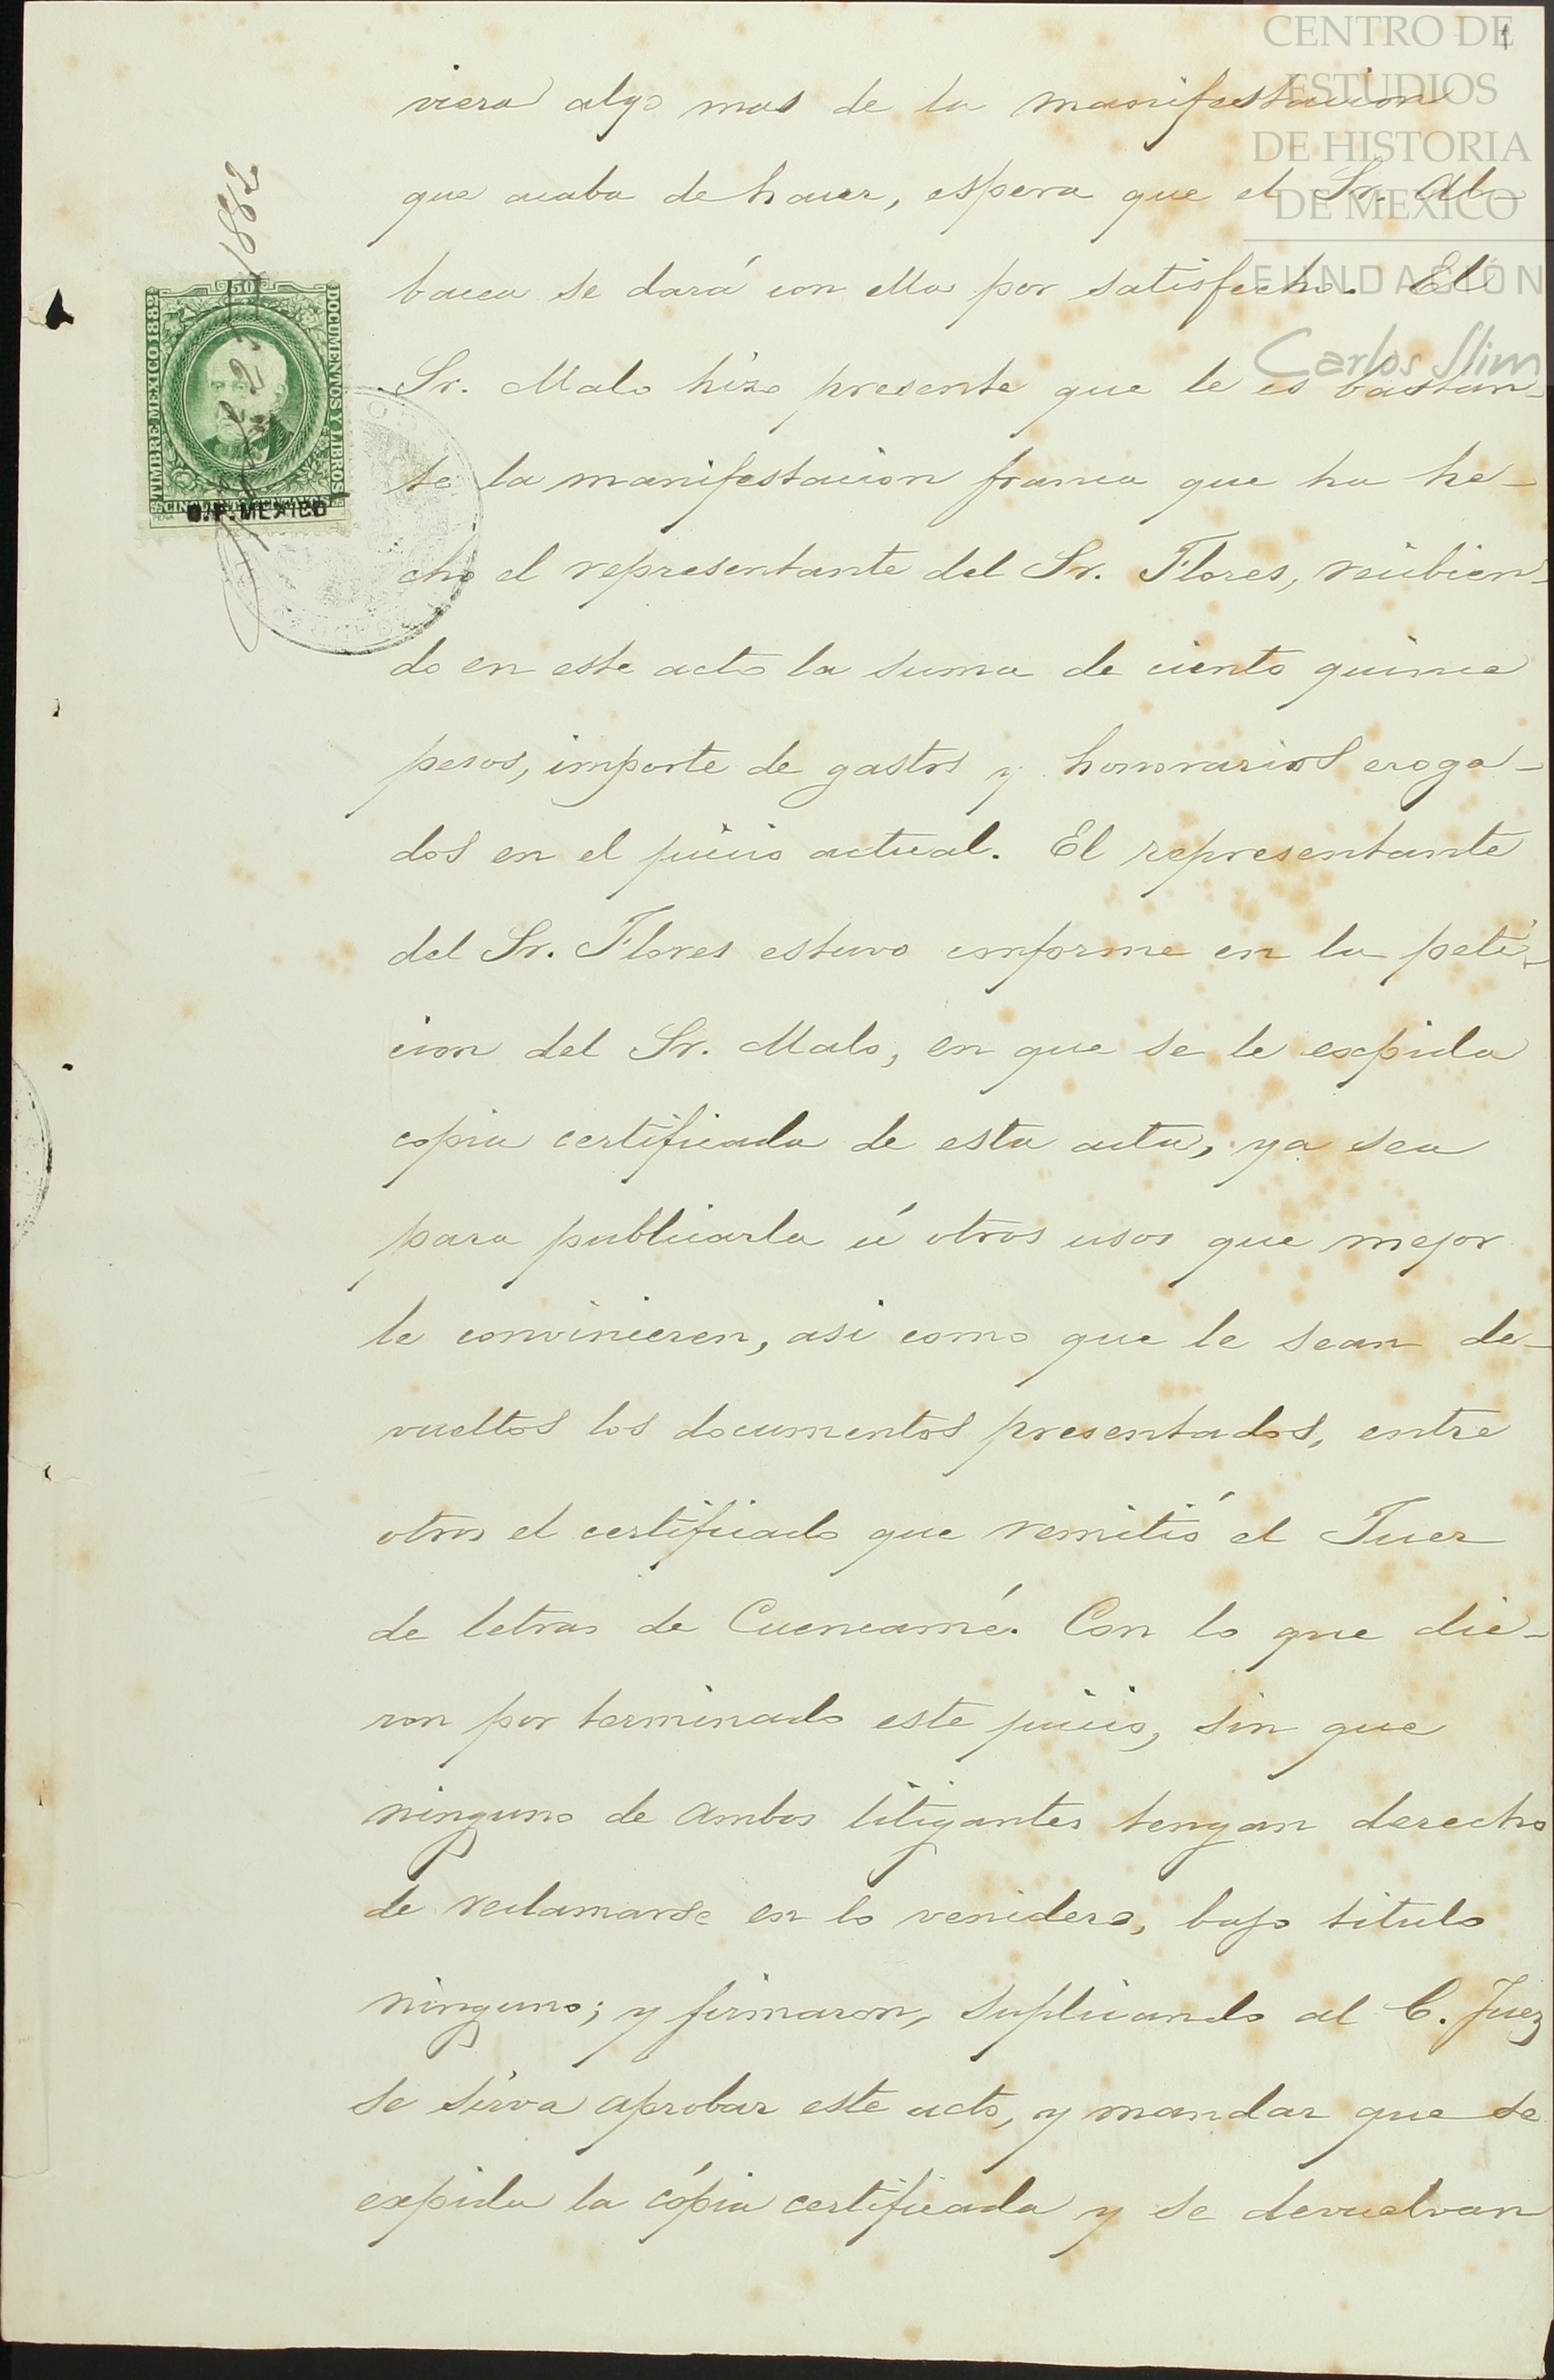 CENTRO DE
ESTUDIOS
DE HISTORIA
DE MEXICO
FUNDACIÓN
Carlos Slim
1
1882
50
TIMBRE MEXICO 1882
DOCUMENTOS Y LIBROS
CINCUENTA CENTAVOS
D.F. MEXICO
viera algo mas de la manifestacion
que acaba de hacer, espera que el Sr. Al-
bacea se dará con ella por satisfecho. El
Sr. Malo hizo presente que le es bastan-
te la manifestacion franca que ha he-
cho el representante del Sr. Flores, recibien-
do en este acto la suma de ciento quince
pesos, importe de gastos y honorarios eroga-
dos en el juicio actual. El representante
del Sr. Flores estuvo conforme en la peti-
cion del Sr. Malo, en que se le expida
copia certificada de esta acta, ya sea
para publicarla ú otros usos que mejor
le convinieren, asi como que le sean de-
vueltos los documentos presentados, entre
otros el certificado que remitió el Juez
de letras de Cuencamé. Con lo que die-
ron por terminado este juicio, sin que
ninguno de ambos litigantes tengan derecho
de reclamarse en lo venidero, bajo titulo
ninguno; y firmaron, suplicando al C. Juez
se sirva aprobar este acto, y mandar que se
expida la cópia certificada y se devuelvan